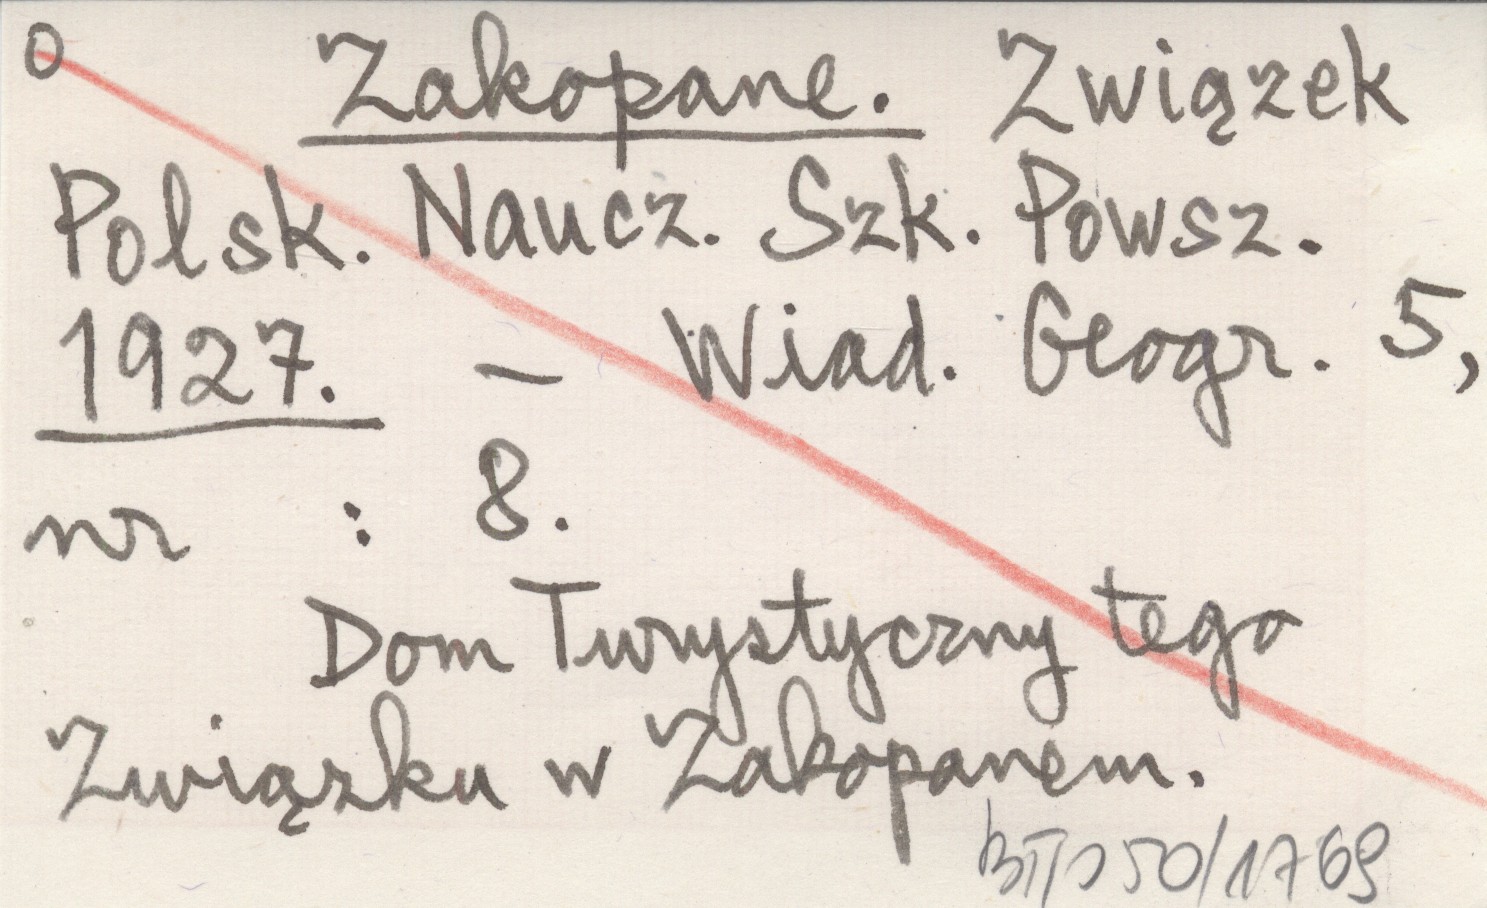 O
Zakopane. Związek
Polsk. Naucz. Szk. Powsz.
1927. — Wiad. Geogr. 5,
nr : 8.
Dom Turystyczny tego
Związku w Zakopanem.
50/1769